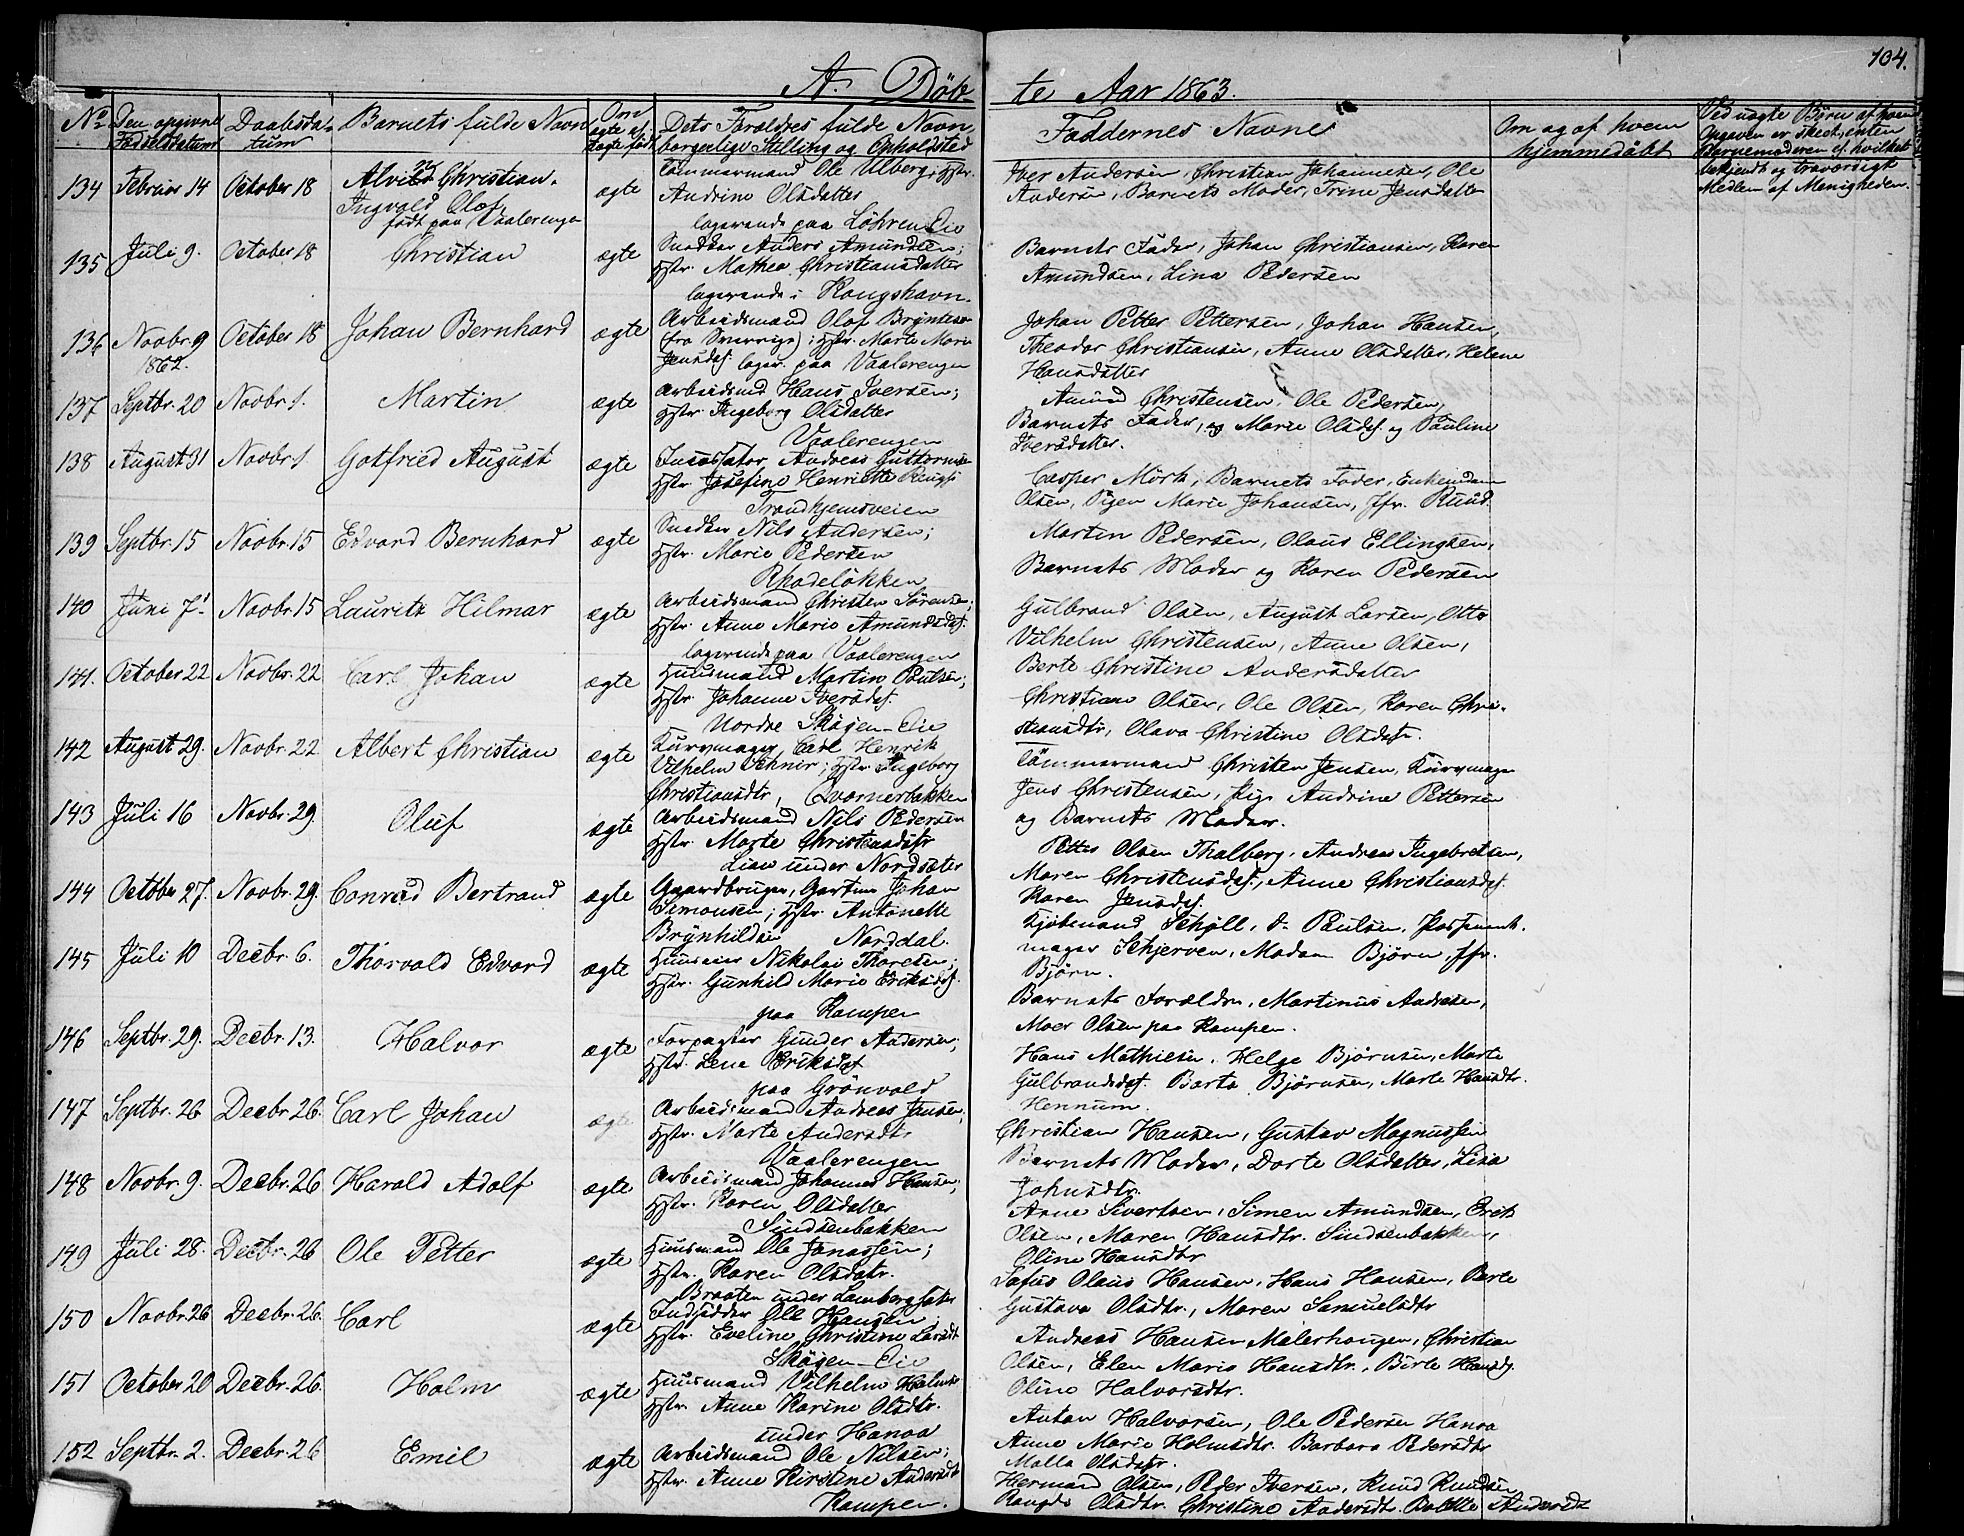 104.
A. Döb- te Aar 1863.
No Den opgivne Fødselsdatum Daabsdatum Barnets fulde Navn Om ægte el. uægte født Dets Forældres fulde Navn, borgerlige Stilling og Opholdsted Faddernes Navne Om og af hvem hjemmedøbt Ved uægte Børn af hvem Opgaven er skeet, enten Barnemoderen el. hvilket bekjendt og troværdigt Medlem af Menigheden.
134 Februar 14 October 18 Christian.
Ingvald Olaf
født paa Vaalerengen
ægte
Tømmermand Ole Ulberg; Hstr.
Andrine Olsdatter
logerende paa Løhren Eie
Iver Andersen, Christian Johannesen, Ole
Andersen, Barnets Moder, Trine Jensdatter
135 Juli 9. October 18 Christian ægte
Snedker Anders Amundsen;
Hstr. Mathea Christiansdatter
logerende i Kongshavn.
Barnets Fader, Johan Christiansen, Karen
Amundsen, Lina Pedersen
136 Novbr. 9 October 18 Johan Bernhard ægte
1862.
Arbeidsmand Olof Bryntesen
(fra Sverrige); Hstr. Marte Marie
Jensdf. loger. paa Vaalerengen
Johan Petter Pettersen, Johan Hansen,
Theodor Christiansen, Anne Olsdatter, Helene
Hansdatter
137 Septbr. 20 Novbr. 1. Martin ægte
Arbeidsmd Hans Iversen;
Hstr. Ingeborg Olsdatter
Vaalerengen
Amund Christensen, Ole Pedersen,
Barnets Fader, og Marie Olsdf. og Pauline
Iversdatter.
138 August 31 Novbr. 1 Gotfried August ægte
Andreas Guttormsen
Hstr. Josefine Henriette
Trondhjemsveien
Casper Mørk, Barnets Fader, Enkemdam
Olsen, Pigen Marie Johansen, Jfr. Ruud.
139 Septbr. 15 Novbr. 15 Edvard Bernhard ægte
Snedker Nils Andersen;
Hstr. Marie Pedersen
Rhodeløkken
Martin Pedersen, Olaus Ellingsen,
Barnets Moder og Karen Pedersen
140 Juni 7. Novbr. 15 Lauritz Hilmar ægte
Arbeidsmand Christen Sørensen;
Hstr. Anne Marie Amundsdf.
logerende paa Vaalerengen
Gulbrand Olsen, August Larsen, Otto
Vilhelm Christensen, Anne Olsen,
Berte Christine Andersdatter
141. October 22 Novbr. 22 Carl Johan ægte
Huusmand Martin Poulsen;
Hstr. Johanne Iversdf.
Nordre Skøjen-Eie
Christian Olsen, Ole Olsen, Karen Chri-
stiansdtr, Olava Christine Olsdf.
142 August 29. Novbr. 22 Albert Christian ægte
Kurvmager Carl Henrik
Vilhelm Schnir; Hstr. Ingeborg
Christiansdtr, Qværnerbakken
Tömmermand Christen Jensen, Kurvmager
Jens Christensen, Pige Andrine Pettersen
og Barnets Moder.
143 Juli 16 Novbr. 29. Oluf ægte
Arbeidsmand Nils Pedersen
Hstr. Marte Christensdtr
Lien under Nordsæter
Petter Olsen Thalberg, Andreas Ingebretsen,
Maren Christensdf., Anne Christiansdf.
Karen Jensdf.
144 October 27. Novbr. 29. Conrad Bertrand ægte
Gaardbruger, Gartner Johan
Simonsen; Hstr. Antonette
Brynhildsen Norddal.
Kjøbmand Schjøll, d- Paulsen, Possement-
mager Schjerven, Madam Bjørn, Jfr.
Bjørn.
145 Juli 10 Decbr. 6. Thorvald Edvard ægte
Huuseier Nikolai Thoresen;
Hstr. Gunhild Marie Eriksdf.
paa Kampen
Barnets Forældre, Martinus Andresen,
Moer Olsen paa Kampen.
146 Septbr. 29. Decbr. 13. Halvor ægte
Forpagter Gunder Andersen;
Hstr. Lene Eriksdf
paa Grönvold
Hans Mathiesen, Helge Bjørnsen, Marte
Gulbrandsdf. Barta Bjørnsen, Marte Hansdtr.
Hennum.
147 Septbr. 26 Decbr. 26. Carl Johan ægte
Arbeidsmand Andreas Jensen,
Hstr. Marte Andersdtr
Vaalerengen
Christian Hansen, Gustav Magnussen
Barnets Moder, Dorte Olsdatter, Lisa
Johnsdtr.
148 Novbr. 9. Decbr. 26 Harald Adolf ægte
Arbeidsmand Johannes Hansen,
Hstr. Karen Olsdatter
Sindsenbakken
Arne Sivertsen, Simen Amundsen, Erik
Olsen, Maren Hansdtr. Sindsenbakken,
Oline Hansdtr
149 Juli 28. Decbr. 26 Ole Petter ægte
Huusmand Ole Jonassen;
Hstr. Karen Olsdatr.
Braaten under Lambergsæter
Sofus Olaus Hansen, Hans Hansen, Berte
Gustava Olsdtr., Maren Samuelsdtr
150 Novbr. 26 Decbr. 26. Carl ægte
Indsidder Ole Hansen;
Hstr. Eveline Christine Larsdt
Skøjen-Eie
Andreas Hansen Malerhaugen, Christian
Olsen, Elen Marie Hansdtr., Birte Hansdf.
Oline Halvorsdtr.
151 October 20 Decbr. 26. Holm ægte
Huusmand Vilhelm Holmsen
Hstr. Anne Karine Olsdtr.
under Hanoa
Anton Halvorsen, Ole Pedersen Hanoa
Anne Marie Holmsdtr. Barbara Pedersdtr
Malla Olsdtr.
152 Septbr. 2. Decbr. 26 Emil ægte
Arbeidsmand Ole Nilsen;
Hstr. Anne Kirstine Andersdt
Kampen.
Herman Olsen, Peder Iversen, Knud Knudsen
Olsdtr. Christine Andersdtr. Andersdt